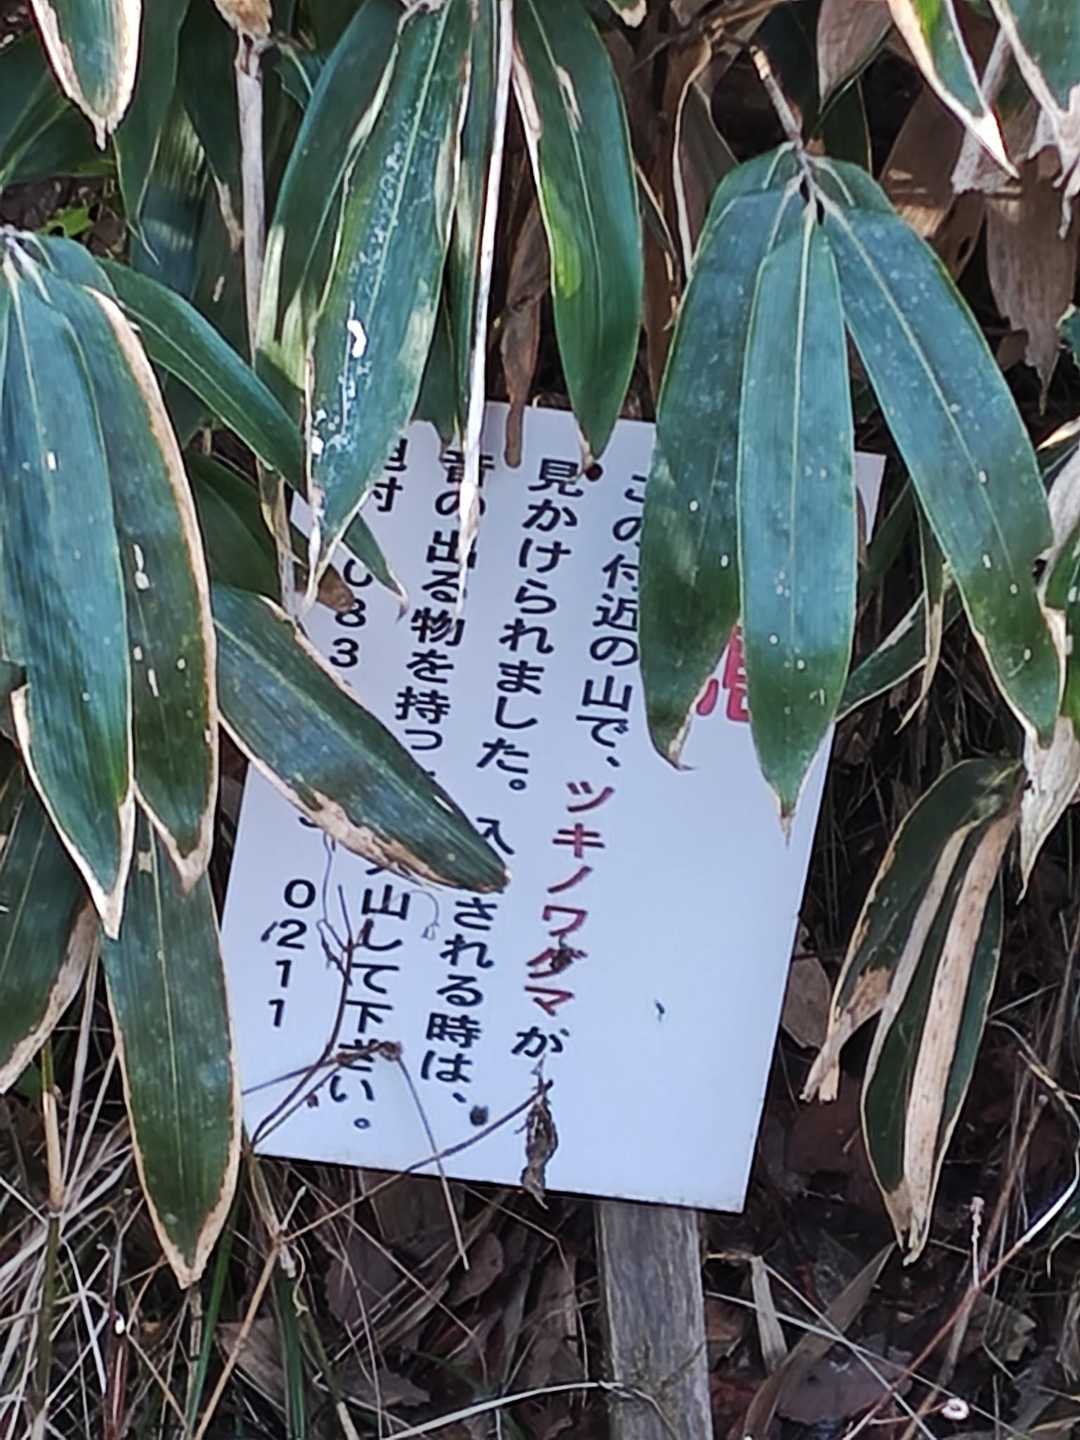 この付近の山で、ツキノワグマが
見かけられました。入される時は、
音の出る物を持っ山して下さい。
083 0211